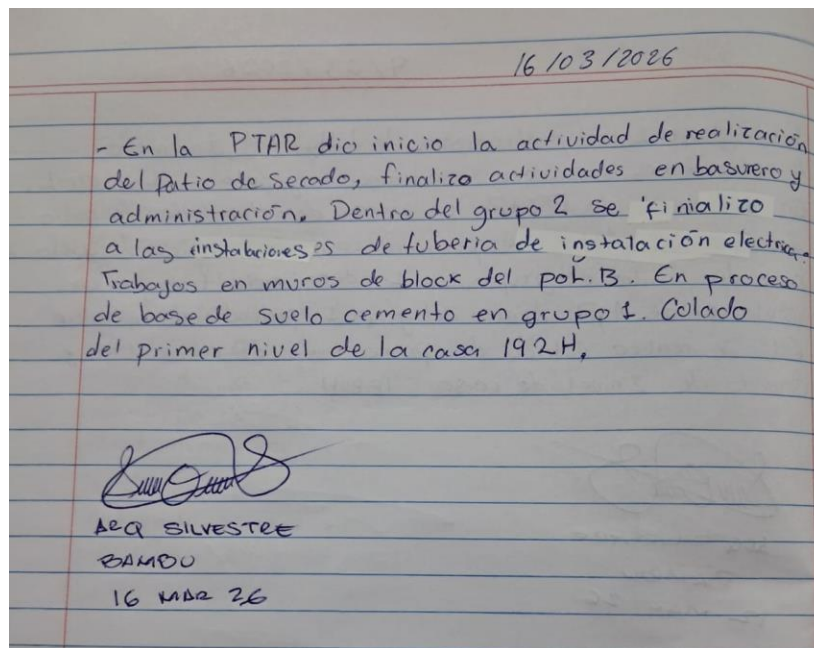 16/03/2026
- En la PTAR dio inicio la actividad de realización
del patio de secado, finalizo actividades en basurero y
administración. Dentro del grupo 2 se finializo
a las instalaciones de tuberia de instalación electrica.
Trabajos en muros de block del pol. B. En proceso
de base de suelo cemento en grupo 1. Colado
del primer nivel de la casa 192H.
ARQ SILVESTRE
BAMBU
16 MAR 26